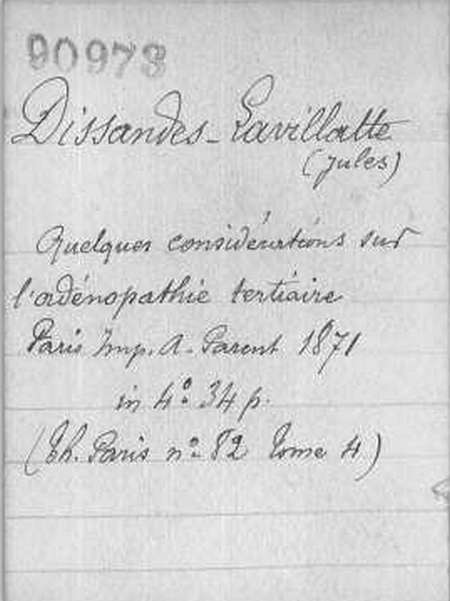 90973
Dissandes-Lavillatte
(Jules)
Quelques considérations sur
l'adénopathie tertiaire
Paris Imp. A. Parent 1871
in 4º 34 p.
(Th. Paris nº 82 Tome 4)